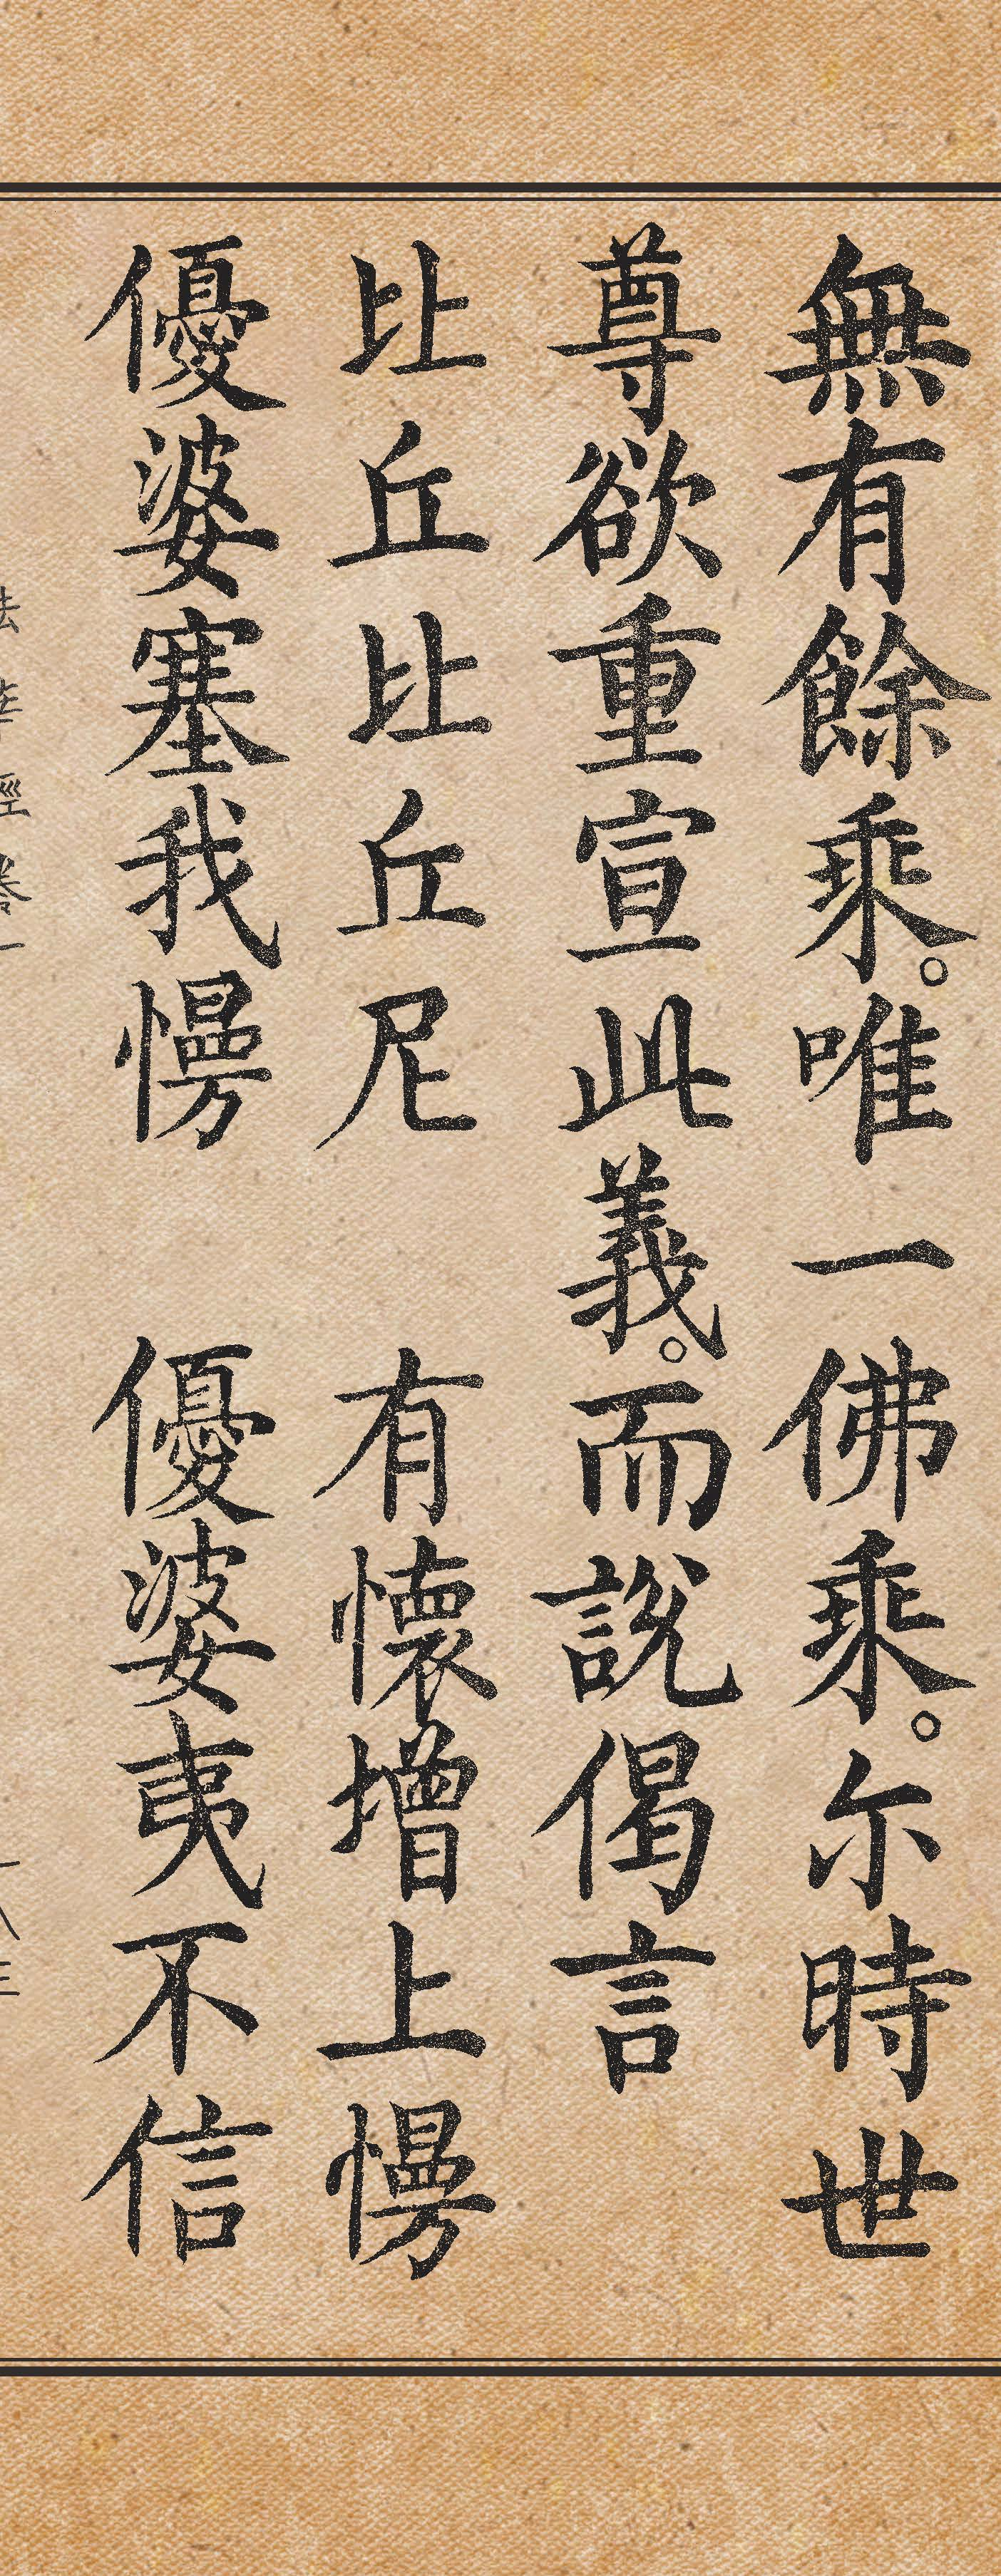 無有餘乘。唯一佛乘。尔時世
尊欲重宣此義。而說偈言
比丘比丘尼　有懷增上慢
優婆塞我慢　優婆夷不信
法華經卷一